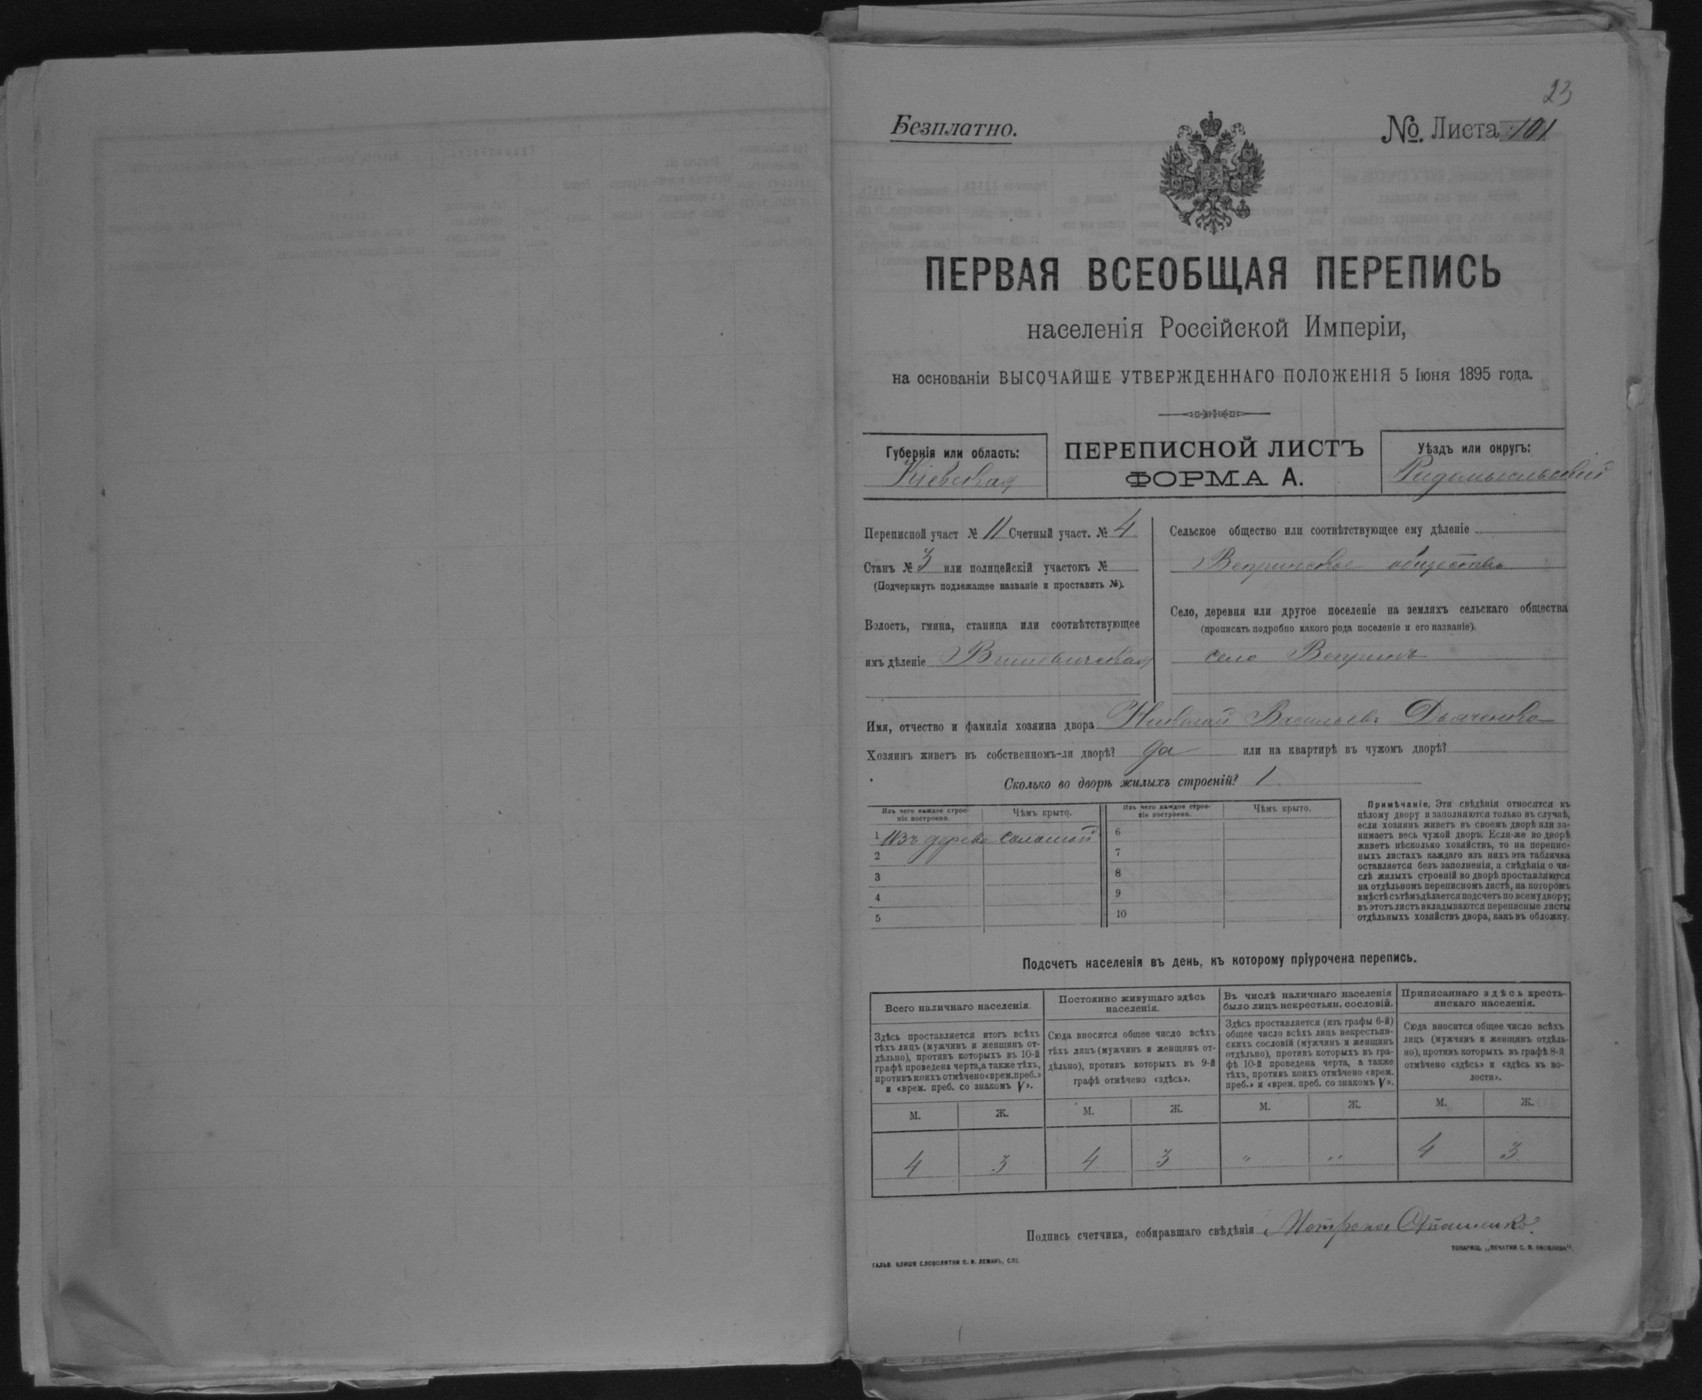 23
Безплатно.
№. Листа 101
ПЕРВАЯ ВСЕОБЩАЯ ПЕРЕПИСЬ
населенія Россійской Имперіи,
на основаніи ВЫСОЧАЙШЕ УТВЕРЖДЕННАГО ПОЛОЖЕНІЯ 5 Іюня 1895 года.
Губернія или область:
Кіевская
ПЕРЕПИСНОЙ ЛИСТЪ
ФОРМА А.
Уѣздъ или округъ:
Радомысльскій
Переписной участ № 11 Счетный участ. № 4
Станъ № 3 или полицейскій участокъ №
(Подчеркнуть подлежащее названіе и проставить №).
Волость, гмина, станица или соотвѣтствующее
имъ дѣленіе Вышевичская
Сельское общество или соотвѣтствующее ему дѣленіе
Вепринское общество
Село, деревня или другое поселеніе на земляхъ сельскаго общества
(прописать подробно какого рода поселеніе и его названіе).
село Вепринъ
Имя, отчество и фамилія хозяина двора Николай Васильевъ Дьяченко
Хозяинъ живетъ въ собственномъ-ли дворѣ? да или на квартирѣ въ чужомъ дворѣ?
Сколько во дворѣ жилыхъ строеній? 1
Изъ чего каждое строеніе построено.
Чѣмъ крыто.
Изъ чего каждое строеніе построено.
Чѣмъ крыто.
1 изъ дерева соломой
2
3
4
5
6
7
8
9
10
Примѣчаніе. Эти свѣдѣнія относятся къ
цѣлому двору и заполняются только въ случаѣ,
если хозяинъ живетъ въ своемъ дворѣ или за-
нимаетъ весь чужой дворъ. Если-же во дворѣ
живетъ нѣсколько хозяйствъ, то на перепис-
ныхъ листахъ каждаго изъ нихъ эта табличка
оставляется безъ заполненія, а свѣдѣнія о чи-
слѣ жилыхъ строеній во дворѣ проставляются
на отдѣльномъ переписномъ листѣ, на которомъ
вмѣстѣ съ тѣмъ дѣлается подсчетъ по всему двору;
въ этотъ листъ вкладываются переписные листы
отдѣльныхъ хозяйствъ двора, какъ въ обложку.
Подсчетъ населенія въ день, къ которому пріурочена перепись.
Всего наличнаго населенія.
Здѣсь проставляется итогъ всѣхъ
тѣхъ лицъ (мужчинъ и женщинъ от-
дѣльно), противъ которыхъ въ 10-й
графѣ проведена черта, а также тѣхъ,
противъ коихъ отмѣчено «врем. преб.»
и «врем. преб. со знакомъ V».
Постоянно живущаго здѣсь
населенія.
Сюда вносится общее число всѣхъ
тѣхъ лицъ (мужчинъ и женщинъ от-
дѣльно), противъ которыхъ въ 9-й
графѣ отмѣчено «здѣсь».
Въ числѣ наличнаго населенія
было лицъ некрестьян. сословій.
Здѣсь проставляется (изъ графы 6-й)
общее число всѣхъ лицъ некрестьян-
скихъ сословій (мужчинъ и женщинъ
отдѣльно), противъ которыхъ въ гра-
фѣ 10-й проведена черта, а также
тѣхъ, противъ коихъ отмѣчено «врем.
преб.» и «врем. преб. со знакомъ V».
Приписаннаго здѣсь кресть-
янскаго населенія.
Сюда вносится общее число всѣхъ
лицъ (мужчинъ и женщинъ отдѣль-
но), противъ которыхъ въ графѣ 8-й
отмѣчено «здѣсь» и «здѣсь въ во-
лости».
М. Ж. М. Ж. М. Ж. М. Ж.
4 3 4 3 " " 4 3
Подпись счетчика, собиравшаго свѣдѣнія